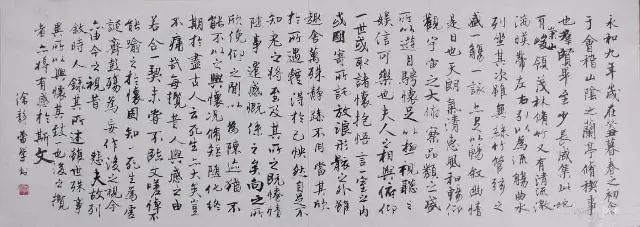 永和九年歲在癸丑暮春之初會
于會稽山陰之蘭亭脩禊事
也羣賢畢至少長咸集此地
有崇山峻領茂林脩竹又有清流激
湍暎帶左右引以為流觴曲水
列坐其次雖無絲竹管弦之
盛一觴一詠亦足以暢敘幽情
是日也天朗氣清惠風和暢仰
觀宇宙之大俯察品類之盛
所以遊目騁懷足以極視聽之
娛信可樂也夫人之相與俯仰
一世或取諸懷抱悟言一室之內
或因寄所託放浪形骸之外雖
趣舍萬殊靜躁不同當其欣
於所遇暫得於己怏然自足不
知老之將至及其所之既惓情
隨事遷感慨係之矣向之所
欣俛仰之間以為陳迹猶不
能不以之興懷況脩短隨化終
期於盡古人云死生亦大矣豈
不痛哉每攬昔人興感之由
若合一契未嘗不臨文嗟悼不
能喻之於懷固知一死生為虛
誕齊彭殤為妄作後之視今
亦由今之視昔悲夫故列
敘時人錄其所述雖世殊事
異所以興懷其致一也後之攬
者亦將有感於斯文